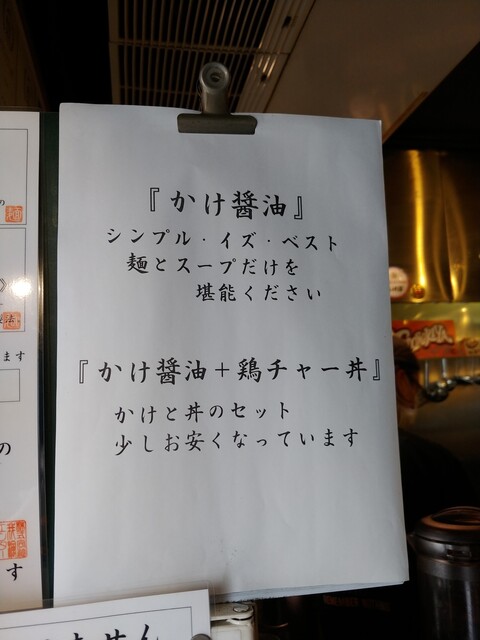 『かけ醤油』
シンプル・イズ・ベスト
麺とスープだけを
堪能ください
『かけ醤油+鶏チャー丼』
かけと丼のセット
少しお安くなっています
ます
の
す